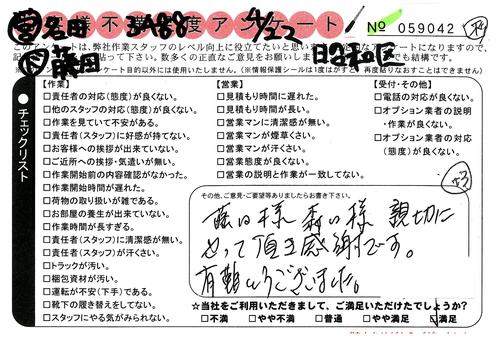 営 名田 3A88 4/22
お客様不満度アンケート
№ 059042
このアンケートは、弊社作業スタッフのレベル向上に役立てたいと思い
藤田
昭和区
チェックリスト
【作業】
□責任者の対応(態度)が良くない。
□他のスタッフの対応(態度)が良くない。
□作業を見ていて不安がある。
□責任者(スタッフ)に好感が持てない。
□お客様への挨拶が出来ていない。
□ご近所への挨拶・気遣いが無い。
□作業開始前の内容確認がなかった。
□作業開始時間が遅れた。
□荷物の取り扱いが雑である。
□お部屋の養生が出来ていない。
□作業時間が長すぎる。
□責任者(スタッフ)に清潔感が無い。
□責任者(スタッフ)が汗くさい。
□トラックが汚い。
□梱包資材が汚い。
□運転が不安(下手)である。
□靴下の履き替えをしてない。
□スタッフにやる気がみられない。
【営業】
□見積もり時間に遅れた。
□見積もり時間が長い。
□営業マンに清潔感が無い。
□営業マンが煙草くさい。
□営業マンが汗くさい。
□営業態度が良くない。
□営業の説明と作業が一致してない。
【受付・その他】
□電話の対応が良くない。
□オプション業者の説明
・作業が良くない。
□オプション業者の対応
(態度)が良くない。
その他、ご意見・ご要望等ありましたらお書き下さい。
藤田様 森山様 親切に
やって頂き感謝です。
有難うございました。
☆当社をご利用いただきまして、ご満足いただけたでしょうか?
□不満 □やや不満 □普通 □やや満足 □満足